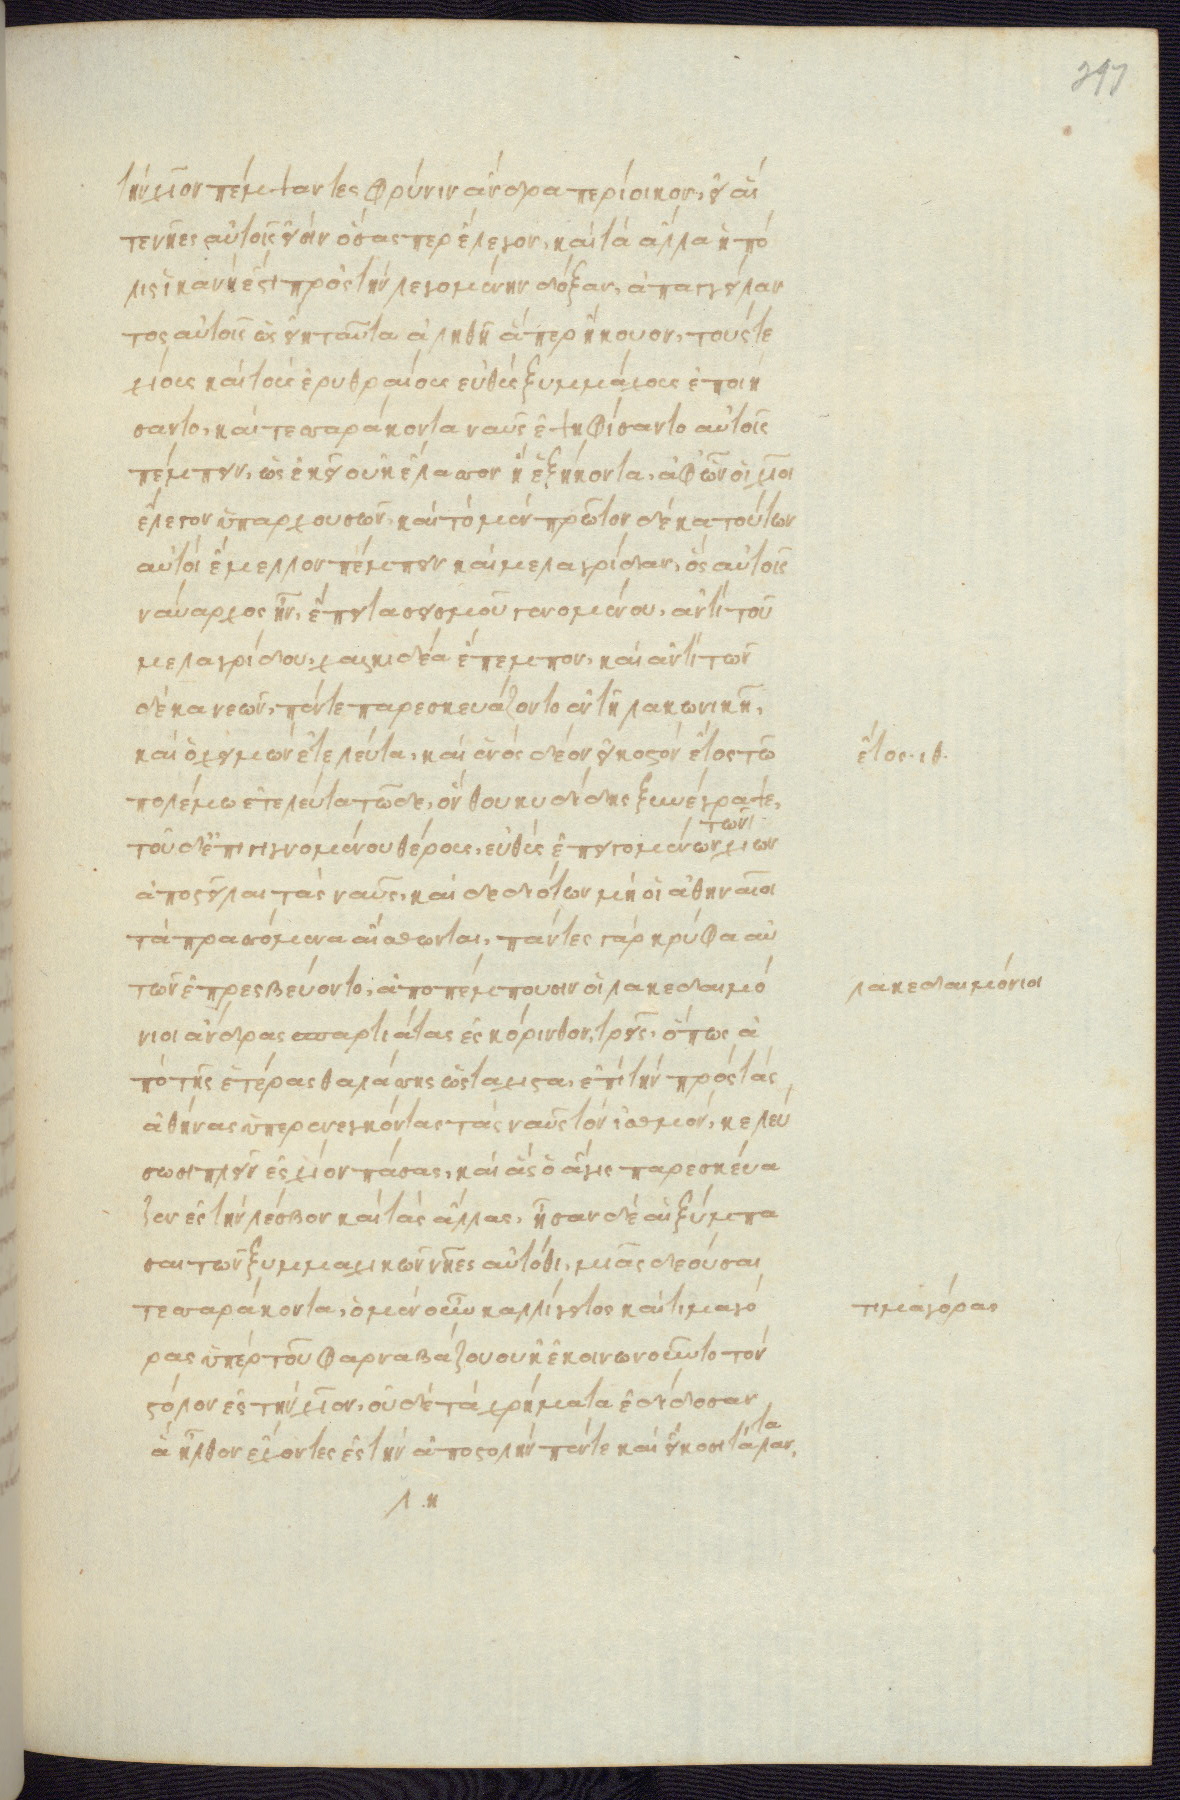 297
την χῖον πέμψαντες φρύνιν ἄνδρα περίοικον, εἰ αἵ
τε νῆες αὐτοῖς εἰσὶν ὅσας περ ἔλεγον, καὶ τὰ ἄλλα ἡ πό
λις ἱκανή ἐστι πρὸς τὴν λεγομένην δόξαν, ἀπαγγείλαν
τος αὐτοῖς ὡς εἴη ταῦτα ἀληθῆ ἅπερ ἤκουον, τούς τε
χίους καὶ τοὺς ἐρυθραίους εὐθὺς ξυμμάχους ἐποιή
σαντο, καὶ τεσσαράκοντα ναῦς ἐψηφίσαντο αὐτοῖς
πέμπειν, ὡς ἐκεῖ οὐκ ἔλασσον ἢ ἑξήκοντα, ἀφ' ὧν οἱ χῖοι
ἔλεγον ὑπαρχουσῶν, καὶ τὸ μὲν πρῶτον δέκα τούτων
αὐτοὶ ἔμελλον πέμπειν καὶ μελαγρίδαν, ὃς αὐτοῖς
ναύαρχος ἦν, ἔπειτα σεισμοῦ γενομένου, ἀντὶ τοῦ
μελαγρίδου, χαλκιδέα ἔπεμπον, καὶ ἀντὶ τῶν
δέκα νεῶν, πέντε παρεσκευάζοντο ἐν τῇ λακωνικῇ,
καὶ ὁ χειμὼν ἐτελεύτα, καὶ ἑνὸς δέον εἰκοστὸν ἔτος τῷ
ἔτος. ιθ.
πολέμῳ ἐτελεύτα τῷδε, ὃν θουκυδίδης ξυνέγραψε,
τοῦ δ' ἐπιγιγνομένου θέρους, εὐθὺς ἐπειγομένων τῶν χίων
ἀποστεῖλαι τὰς ναῦς, καὶ δεδιότων μὴ οἱ ἀθηναῖοι
τὰ πρασσόμενα αἴσθωνται, πάντες γὰρ κρύφα αὐ
τῶν ἐπρεσβεύοντο, ἀποπέμπουσιν οἱ λακεδαιμό
λακεδαιμόνιοι
νιοι ἄνδρας σπαρτιάτας ἐς κόρινθον, τρεῖς, ὅπως ἀ
πὸ τῆς ἑτέρας θαλάσσης ὡς τάχιστα, ἐπὶ τὴν πρὸς τὰς
ἀθήνας ὑπερενεγκόντας τὰς ναῦς τὸν ἰσθμὸν, κελεύ
σωσι πλεῖν ἐς χίον πάσας, καὶ ἃς ὁ ἄγις παρεσκεύα
ζεν ἐς τὴν λέσβον καὶ τὰς ἄλλας, ἦσαν δὲ αἱ ξύμπα
σαι τῶν ξυμμαχικῶν νῆες αὐτόθι, μιᾶς δεούσαι
τεσσαράκοντα, ὁ μὲν οὖν καλλίγειτος καὶ τιμαγό
τιμαγόρας
ρας ὑπὲρ τοῦ φαρναβάζου οὐκ ἐκοινωνοῦντο τὸν
στόλον ἐς τὴν χῖον, οὐδὲ τὰ χρήματα ἐδίδοσαν
ἃ ἦλθον ἔχοντες ἐς τὴν ἀποστολὴν πέντε καὶ εἴκοσι τάλαντα,
λ. κ